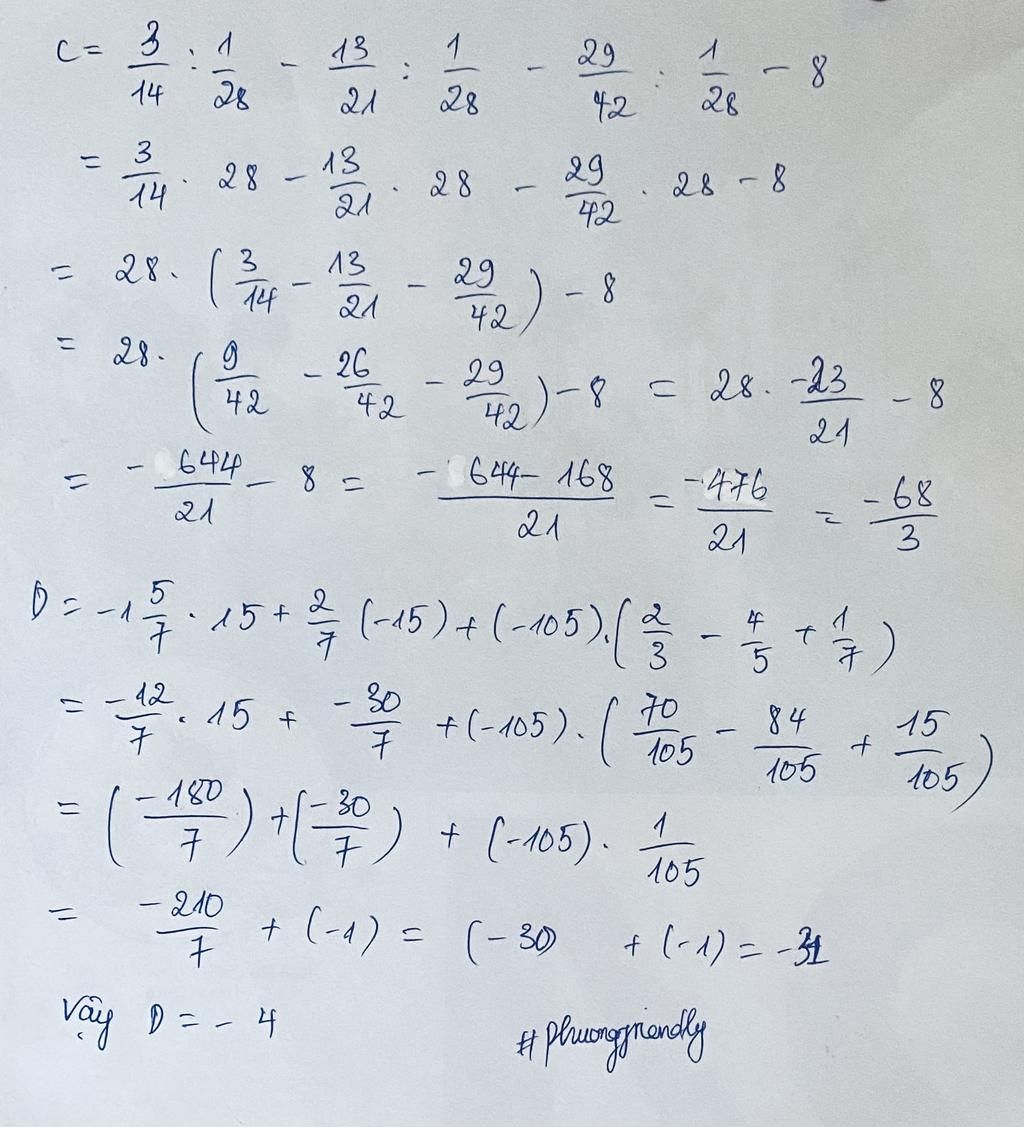 C = 3/14 : 1/28 - 13/21 : 1/28 - 29/42 : 1/28 - 8
= 3/14 . 28 - 13/21 . 28 - 29/42 . 28 - 8
= 28 . (3/14 - 13/21 - 29/42) - 8
= 28 . (9/42 - 26/42 - 29/42) - 8 = 28 . -23/21 - 8
= - 644/21 - 8 = - 644 - 168/21 = -476/21 = -68/3
D = -1 5/7 . 15 + 2/7 (-15) + (-105) . (2/3 - 4/5 + 1/7)
= -12/7 . 15 + -30/7 + (-105) . (70/105 - 84/105 + 15/105)
= (-180/7) + (-30/7) + (-105) . 1/105
= -210/7 + (-1) = (-30) + (-1) = -31
Vậy D = - 4
#Phuongfriendly